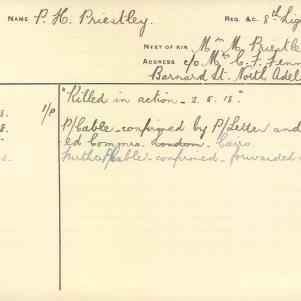 NAME P. H. Priestley. REG. &C. 8th Lig
NEXT OF KIN Mrs M. Priestle
ADDRESS c/o Mrs C. F. Fenn
Barnard St. North Adel
"Killed in action - 3. 5. 18."
8. 1/P
8. P/Cable - confirmed by P/Letter and
ed Commrs. London. Cairo.
8. Further P/Cable - confirmed - forwarded